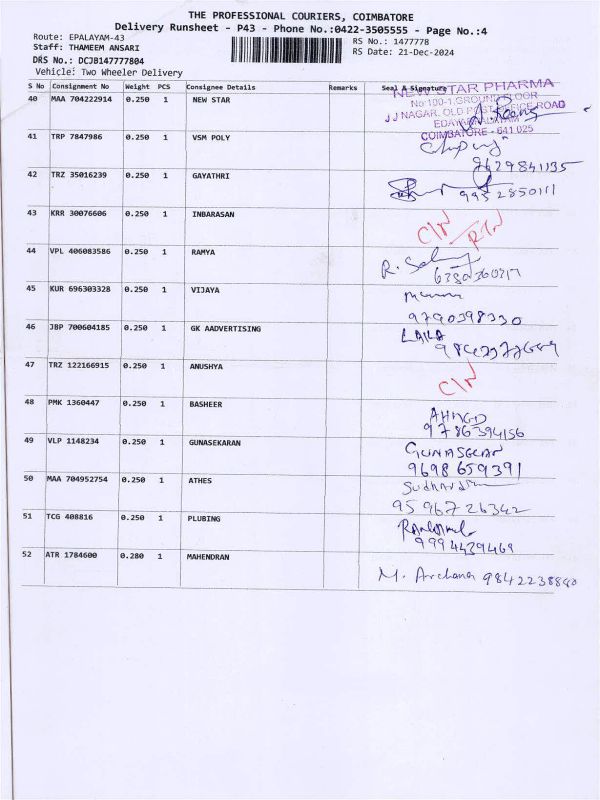 THE PROFESSIONAL COURIERS, COIMBATORE
Delivery Runsheet - P43 - Phone No.:0422-3505555 - Page No.:4
Route: EPALAYAM-43
Staff: THAMEEM ANSARI
RS No.: 1477778
RS Date: 21-Dec-2024
DRS No.: DCJB147777804
Vehicle: Two Wheeler Delivery
S No Consignment No Weight PCS Consignee Details Remarks Seal & Signature
NEW STAR PHARMA
No:100-1,GROUND FLOOR
J J NAGAR, OLD POST OFFICE ROAD
EDAYARPALAYAM
COIMBATORE - 641 025
40 MAA 704222914 0.250 1 NEW STAR
41 TRP 7847986 0.250 1 VSM POLY
9629841135
42 TRZ 35016239 0.250 1 GAYATHRI
9952850111
43 KRR 30076606 0.250 1 INBARASAN
C/N RTN
44 VPL 406083586 0.250 1 RAMYA
R.
45 KUR 696303328 0.250 1 VIJAYA
9790398330
46 JBP 700604185 0.250 1 GK AADVERTISING
LAILA
47 TRZ 122166915 0.250 1 ANUSHYA
C/N
48 PMK 1360447 0.250 1 BASHEER
AHMED
9786394156
49 VLP 1148234 0.250 1 GUNASEKARAN
GUNASEKAN
9698659391
50 MAA 704952754 0.250 1 ATHES
9596726342
51 TCG 408816 0.250 1 PLUBING
9994439469
52 ATR 1784600 0.280 1 MAHENDRAN
M. Archana 9842238880